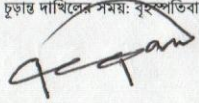 চূড়ান্ত দাখিলের সময়: বৃহস্পতিবা